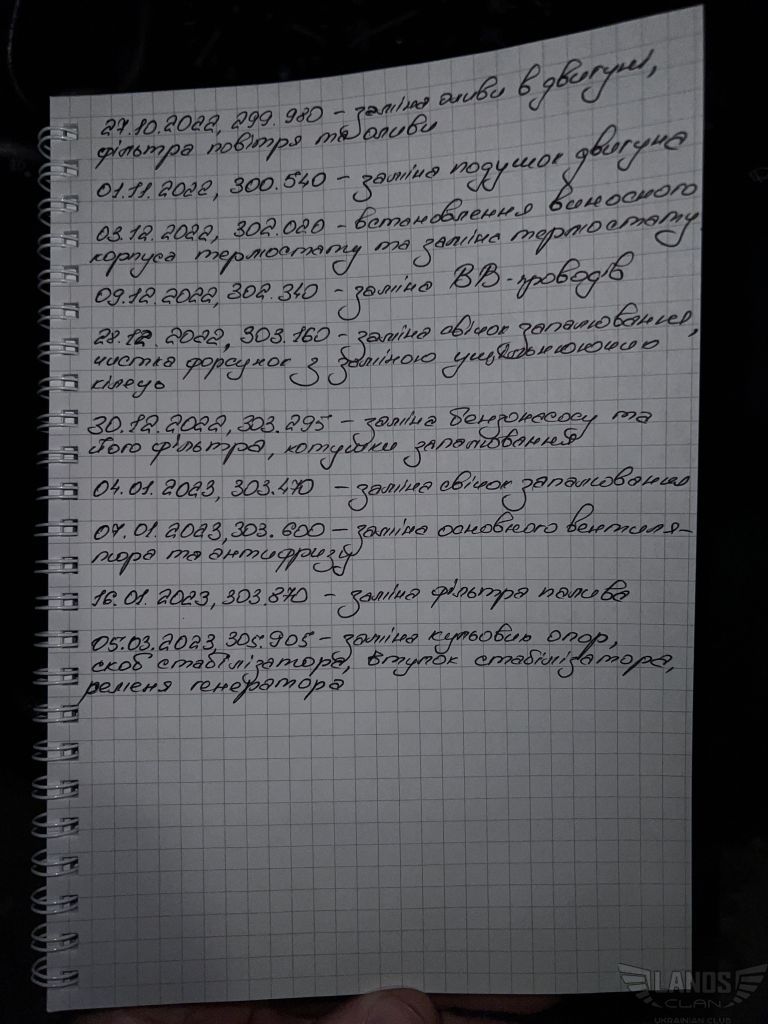 27.10.2022, 299.980 – заміна оливи в двигуні,
фільтра повітря та оливи
01.11.2022, 300.540 – заміна подушок двигуна
03.12.2022, 302.020 – встановлення виносного
корпуса термостату та заміна термостату
09.12.2022, 302.340 – заміна ВВ-проводів
28.12.2022, 303.160 – заміна свічок запалювання,
чистка форсунок з заміною ущільнюючих
кілець
30.12.2022, 303.295 – заміна бензонасосу та
його фільтра, котушки запалювання
04.01.2023, 303.470 – заміна свічок запалювання
07.01.2023, 303.600 – заміна основного вентиля-
тора та антифризу
16.01.2023, 303.870 – заміна фільтра палива
05.03.2023, 305.905 – заміна кульових опор,
скоб стабілізатора, втулок стабілізатора,
ременя генератора
LANOS
CLAN
UKRAINIAN CLUB